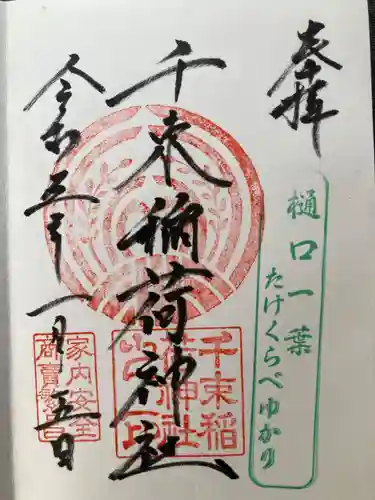 奉拝
樋口一葉
たけくらべゆかり
千束稲荷神社
千束稲
荷神社
令和三年一月五日
家内安全
商売繁昌